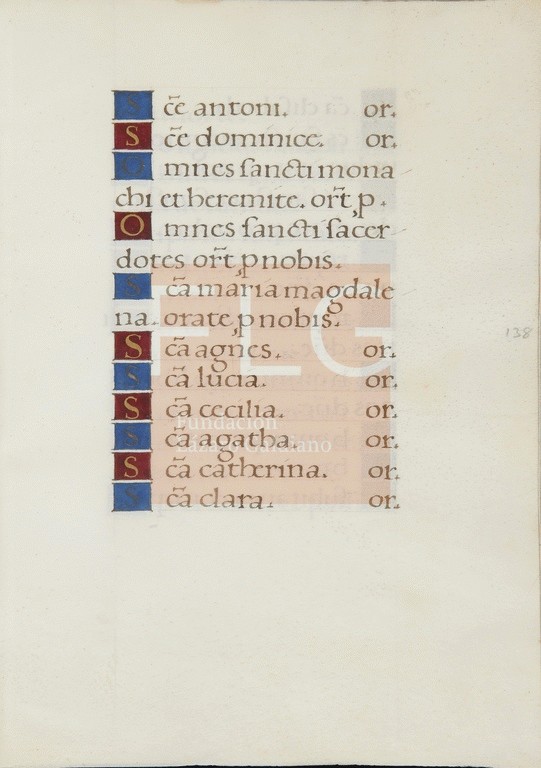 Sc̄e antoni. or.
Sc̄e dominice. or.
Omnes sancti mona
chi et heremite. or̄t p.
Omnes sancti sacer
dotes or̄t p nobis.
Sc̄a maria magdale
na. orate p nobis.
Sc̄a agnes. or.
Sc̄a lucia. or.
Sc̄a cecilia. or.
Sc̄a agatha. or.
Sc̄a catherina. or.
Sc̄a clara. or.
138
FLG
Fundación
Lázaro Galdiano